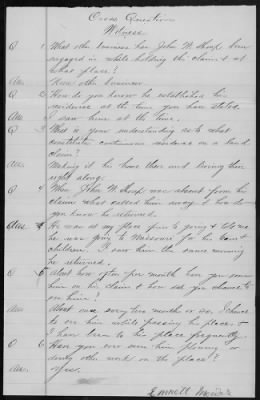 Cross Question
Witness
Q 1 What other business has John W. Sharp been
engaged in while holding the claim & at
what place?
Ans. None other business.
Q 2 How do you know he established his
residence at the time you have stated.
Ans I saw him at the time.
Q 3 What is your understanding as to what
constitutes continuous residence on a land
claim?
Ans. Making it his home there and living there
right along.
Q 4 When John W. Sharp was absent from his
claim what called him away & how do
you know he returned.
Ans 4 He was at my place prior to going & told me
he was going to Missouri for his and
children. I saw him the same morning
he returned.
Q 5 About how often per month have you seen
him on his claim & how did you chance to
see him?
Ans About once every two months or so, I chanced
to see him while passing his place, &
I have been to his place frequently.
Q 6 Have you ever seen him plowing or
doing other work on the place?
Ans Yes.
Emmett